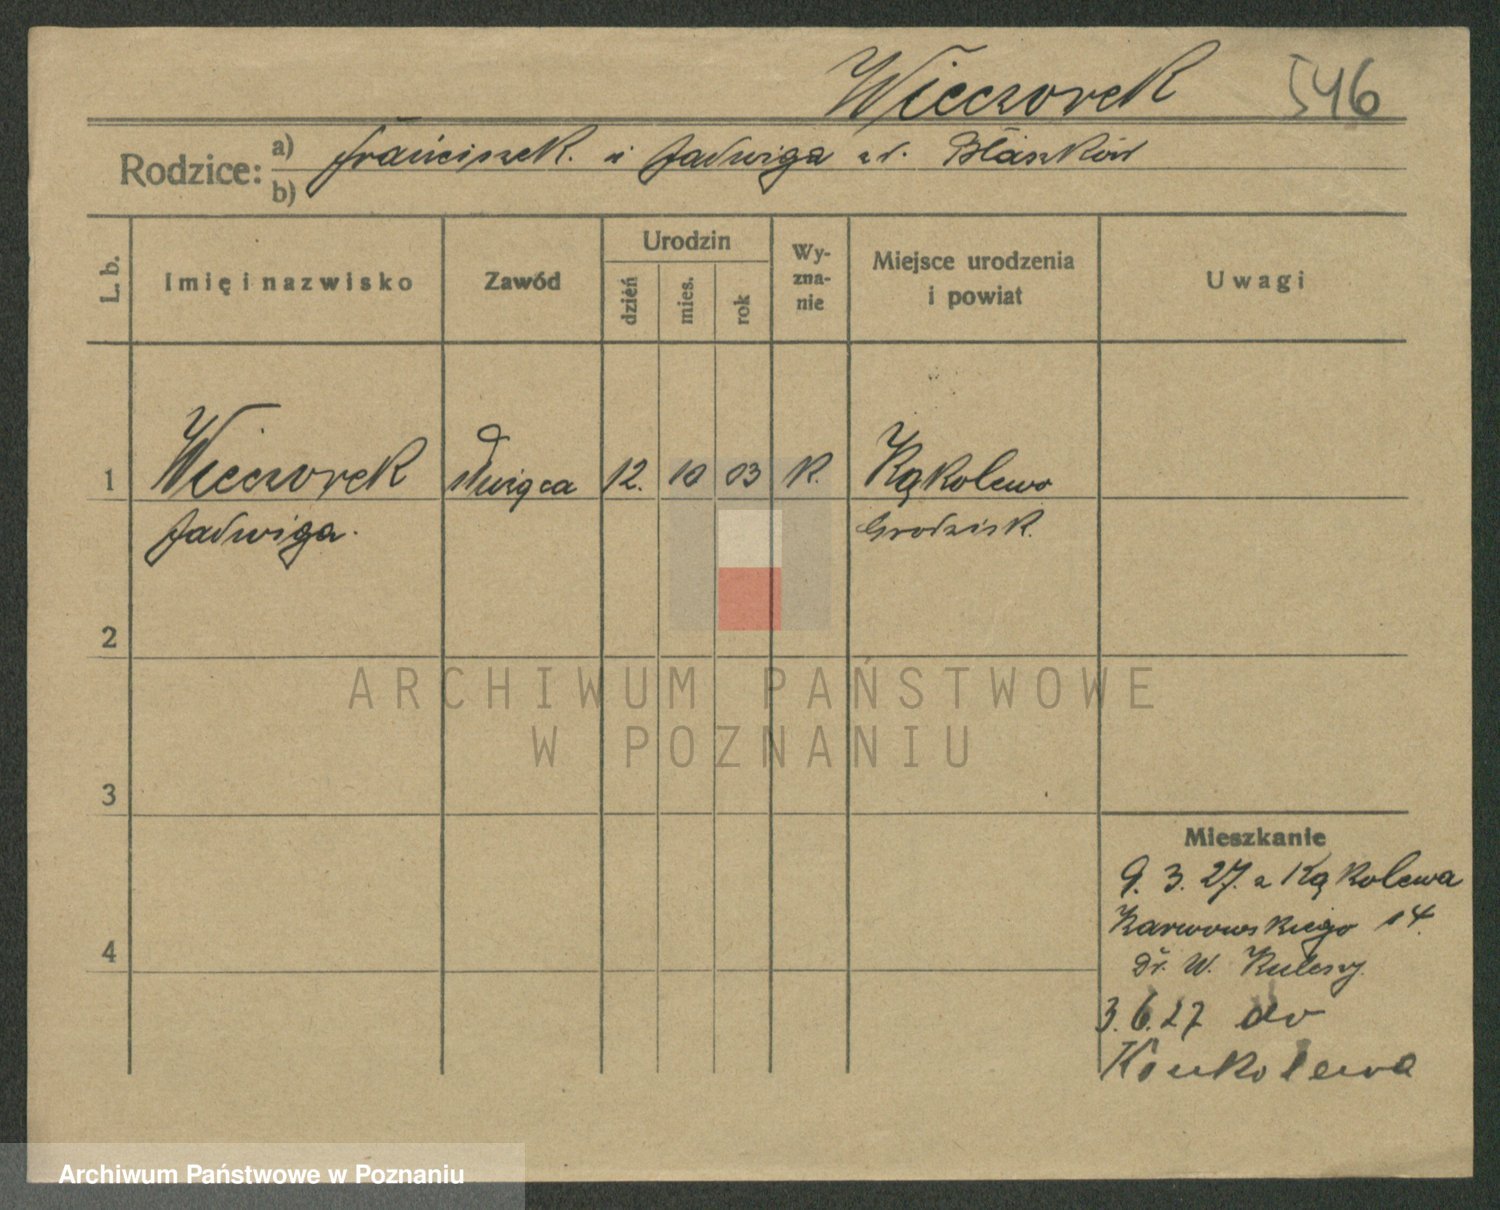 Wieczorek 546
Rodzice: a) Franciszek i Jadwiga z d. Błaszków
b)
L. b. Imię i nazwisko Zawód Urodzin dzień mies. rok Wyznanie Miejsce urodzenia i powiat Uwagi
1 Wieczorek służąca 12. 10 03 K. Kąkolewo
Jadwiga. Grodzisk.
2
ARCHIWUM PAŃSTWOWE
W POZNANIU
3
Mieszkanie
9. 3. 27. z Kąkolewa
Karwowskiego 14.
4
Dr. W. Kuleszy
3.6.27 do
Konkolewa
Archiwum Państwowe w Poznaniu